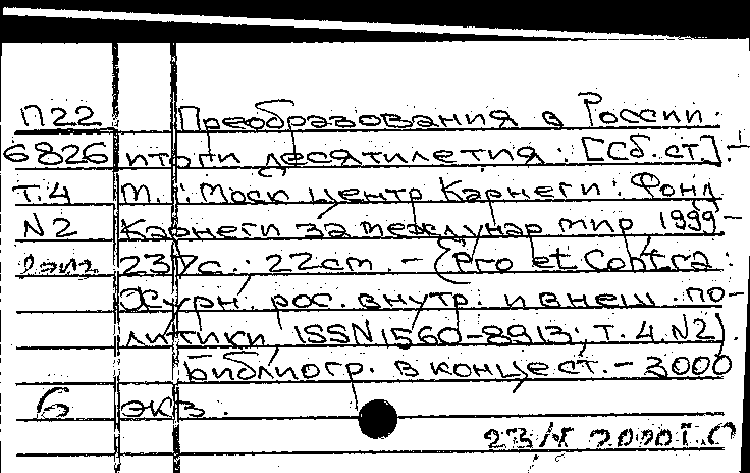 П22 Преобразования в России:
6826 итоги десятилетия: [Сб. ст.]. –
Т.4 М.: Моск центр Карнеги: Фонд
N2 Карнеги за междунар мир, 1999 –
237с.; 22см. – (Pro et Contra:
Журн. рос. внутр. и внеш. по-
литики, ISSN 1560-8913; Т. 4. N2).
Библиогр. в конце ст. – 3000
6 экз.
23/X 2000